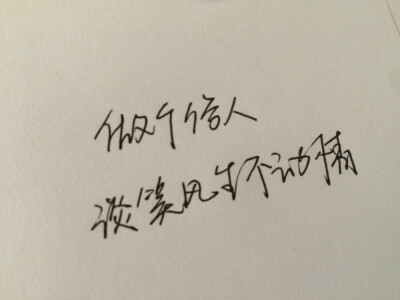 做个俗人
谈笑风生不动情